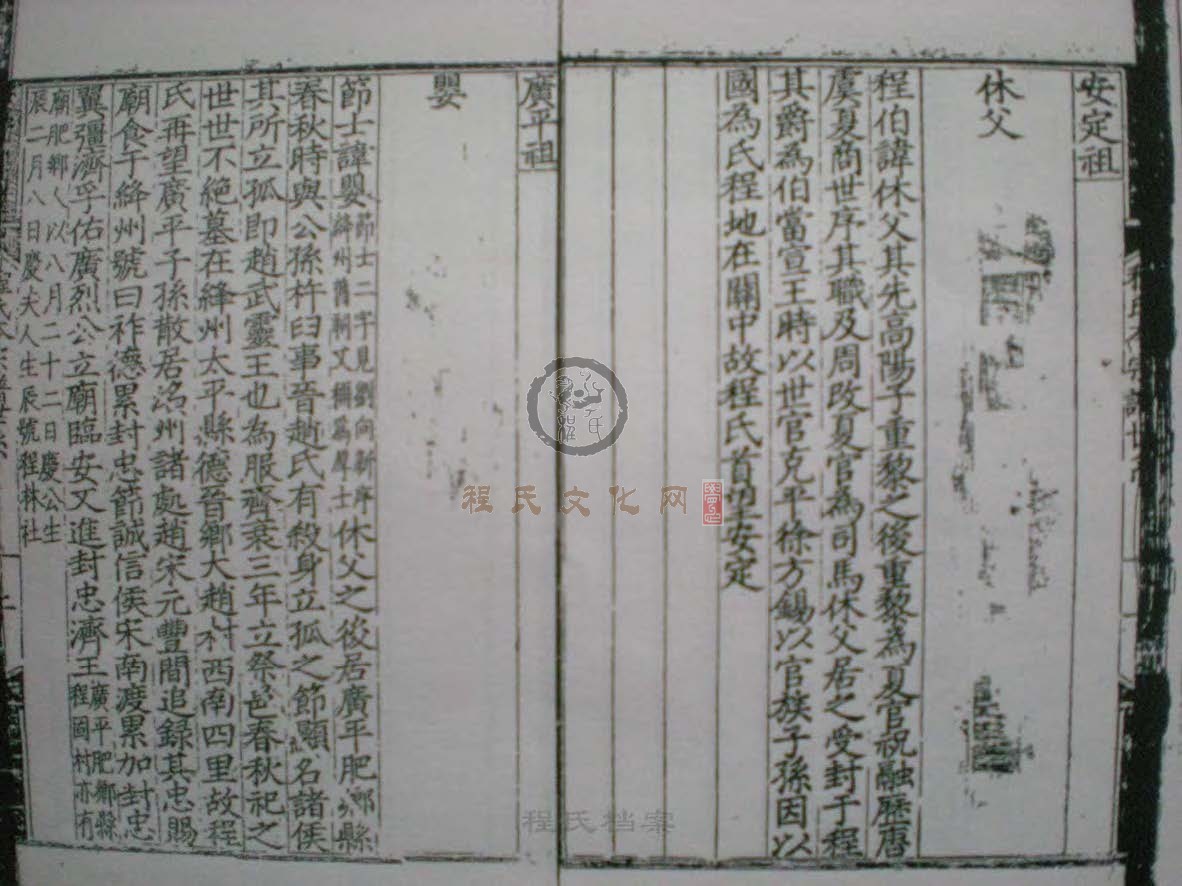 安定祖
休父
程伯諱休父其先高陽子重黎之後重黎為夏官祝融歷唐
虞夏商世序其職及周改夏官為司馬休父居之受封于程
其爵為伯當宣王時以世官克平徐方錫以官族子孫因以
國為氏程地在關中故程氏首望安定
廣平祖
嬰
節士諱嬰節士二字見劉向新序絳州舊祠又稱為犀士休父之後居廣平肥鄉縣
春秋時與公孫杵臼事晉趙氏有殺身立孤之節顯名諸侯
其所立孤即趙武靈王也為服齊衰三年立祭邑春秋祀之
世世不絕墓在絳州太平縣德音鄉大趙村西南四里故程
氏再望廣平子孫散居洺州諸處趙宋元豐間追錄其忠賜
廟食于絳州號曰祚德累封忠節誠信侯宋南渡累加封忠
翼彊濟孚佑廣烈公立廟臨安又進封忠濟王廣平肥鄉縣程固村亦有
廟肥鄉人以八月二十二日慶公生
辰二月八日慶夫人生辰號程林社
程氏文化网
程氏档案